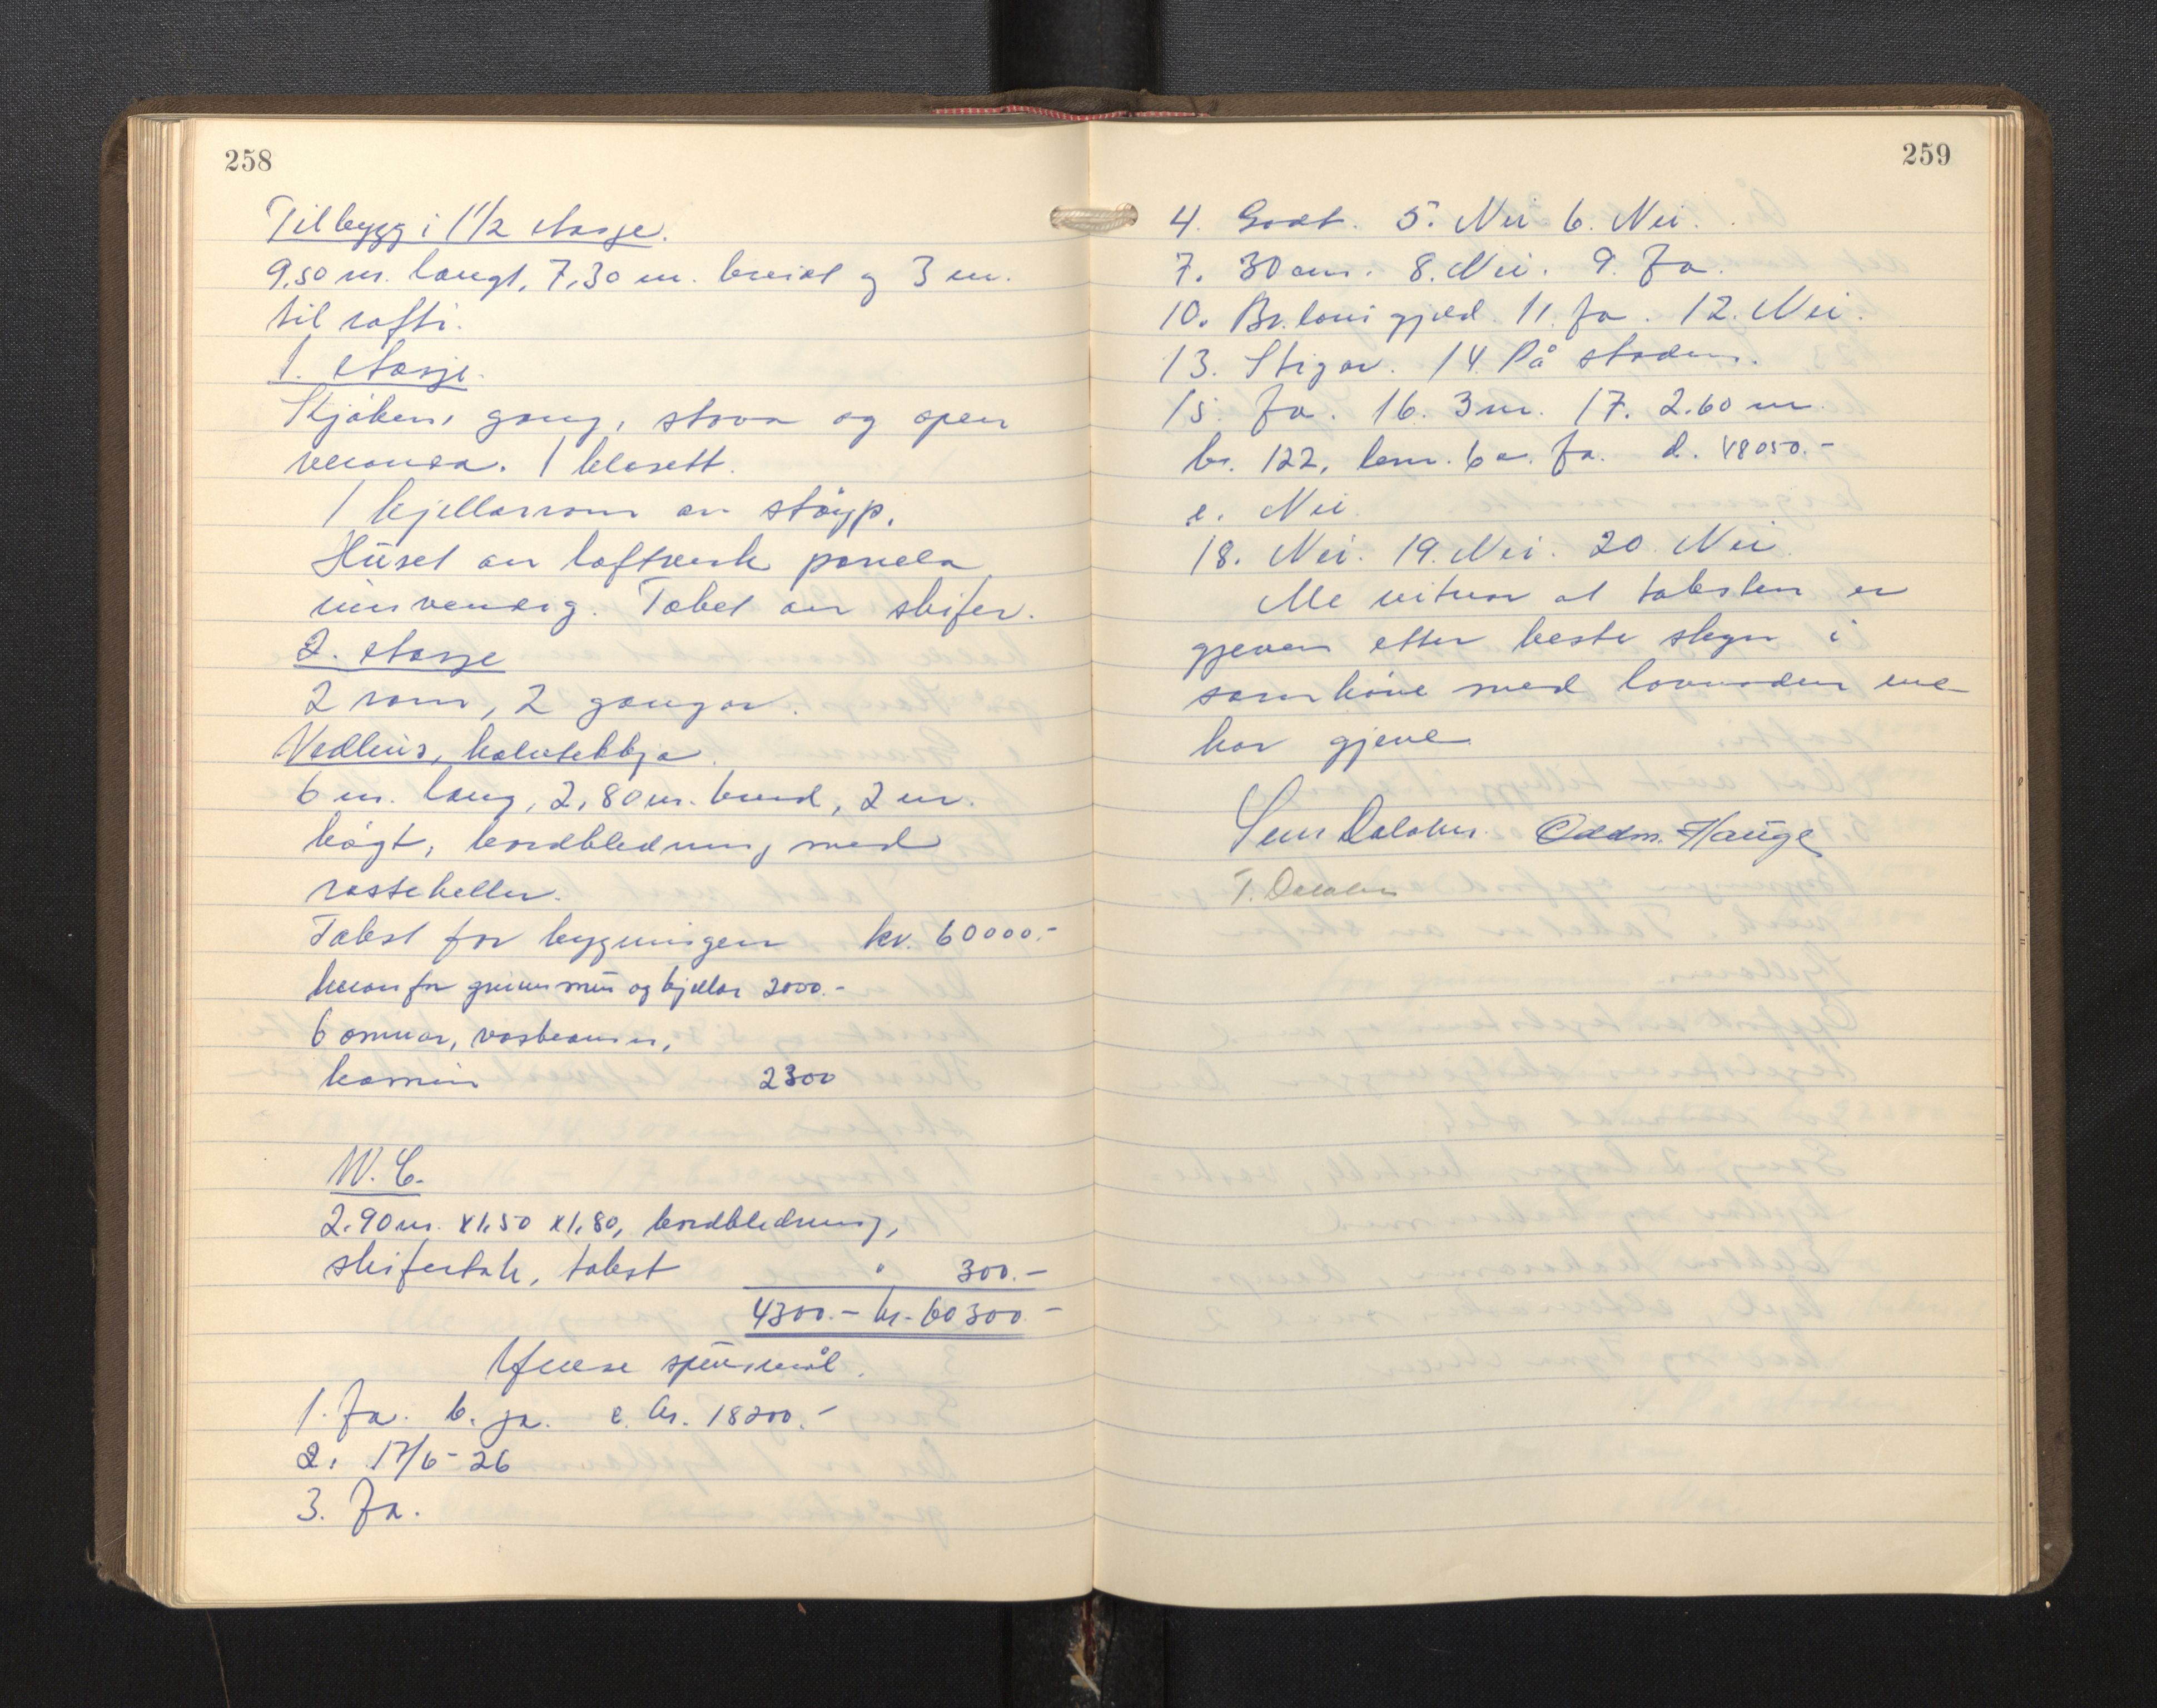 258
Tilbygg i 1 1/2 etasje.
9,50 m. langt, 7,30 m. breidt og 3 m.
til rafti.
1. etasje.
Kjøken, gang, stova og open
veranda. 1 klosett.
1 kjellarrom av støyp.
Huset av laftverk panela
innvendig. Taket av skifer.
2. etasje
2 rom, 2 gangar.
Vedhus,
6 m. lang, 2,80 m. breid, 2 m.
høgt, bordkledning med
rastehellur.
Takst for bygningen kr. 60000.-
herav for grunnmur og kjellar 2000.-
6 omnar,
kamin 2300
W. C.
2.90 m. x 1,50 x 1,80, bordkledning,
skifertak, takst " 300.-
4300.- kr. 60300.-
Ymse spursmål.
1. Ja. b. ja. c. kr. 18200.-
2. 17/6-26
3. Ja.
259
4. Godt. 5. Nei 6. Nei.
7. 30 cm. 8. Nei. 9. Ja.
10. Br. lovi gjeld. 11. Ja. 12. Nei.
13. Stigar. 14. På staden.
15. Ja. 16. 3 m. 17. 2.60 m.
br. 122, lem. 6 a. Ja. d. 48050.-
e. Nei
18. Nei. 19. Nei. 20. Nei.
Me vitnar at taksten er
gjeven etter beste skyn i
samhøve med lovnaden me
har gjeve
Dalaker. Oddm. Hauge
T. Dalaker